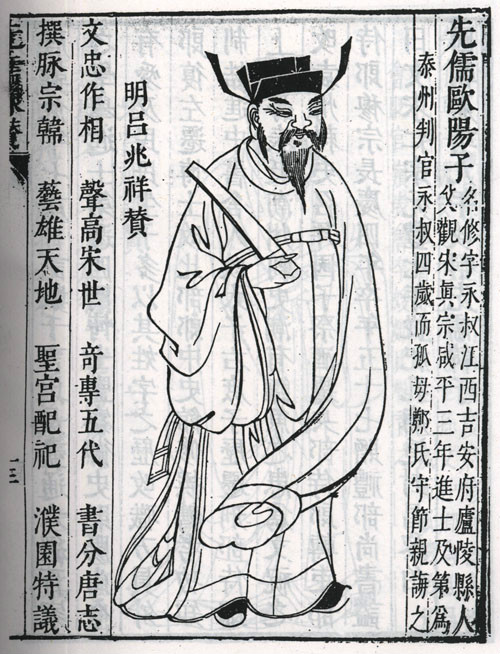 先儒歐陽子
名修字永叔江西吉安府廬陵縣人
父觀宋眞宗咸平三年進士及第爲
泰州判官永叔四歲而孤母鄭氏守節親誨之
明呂兆祥賛
文忠作相 聲高宋世 竒專五代 書分唐志
撰脉宗韓 藝雄天地 聖宮配祀 濮園特議